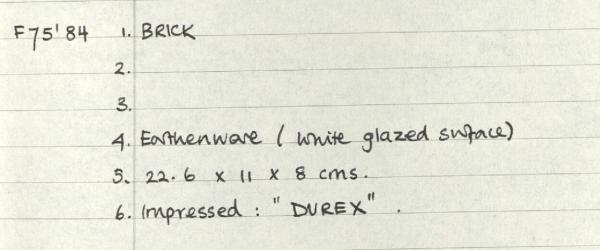 F75'84 1. BRICK
2.
3.
4. Earthenware ( white glazed surface)
5. 22.6 x 11 x 8 cms.
6. Impressed : "DUREX" .